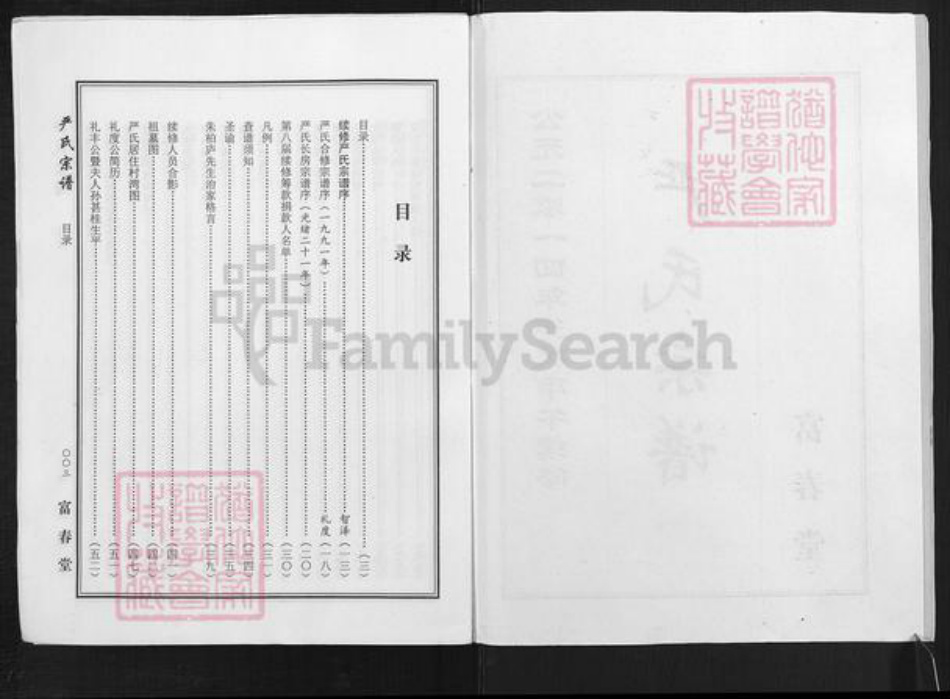 目录
目录……(三)
续修严氏宗谱序……智泽(一三)
严氏合修宗谱序(一九九一年)……礼度(一八)
严氏长房宗谱序(光绪二十一年)……(二〇)
第八届续修筹款捐款人名单……(三〇)
凡例……(三一)
查谱须知……(三四)
圣谕……(三五)
朱柏庐先生治家格言……(三九)
续修人员合影……(四一)
祖墓图……
严氏居住村湾图……(四七)
礼度公简历……(五一)
礼丰公暨夫人孙甚桂生平……(五二)
严氏宗谱
目录
〇〇三
富春堂
猶他家譜學會收藏
猶他家譜學會收藏
FamilySearch